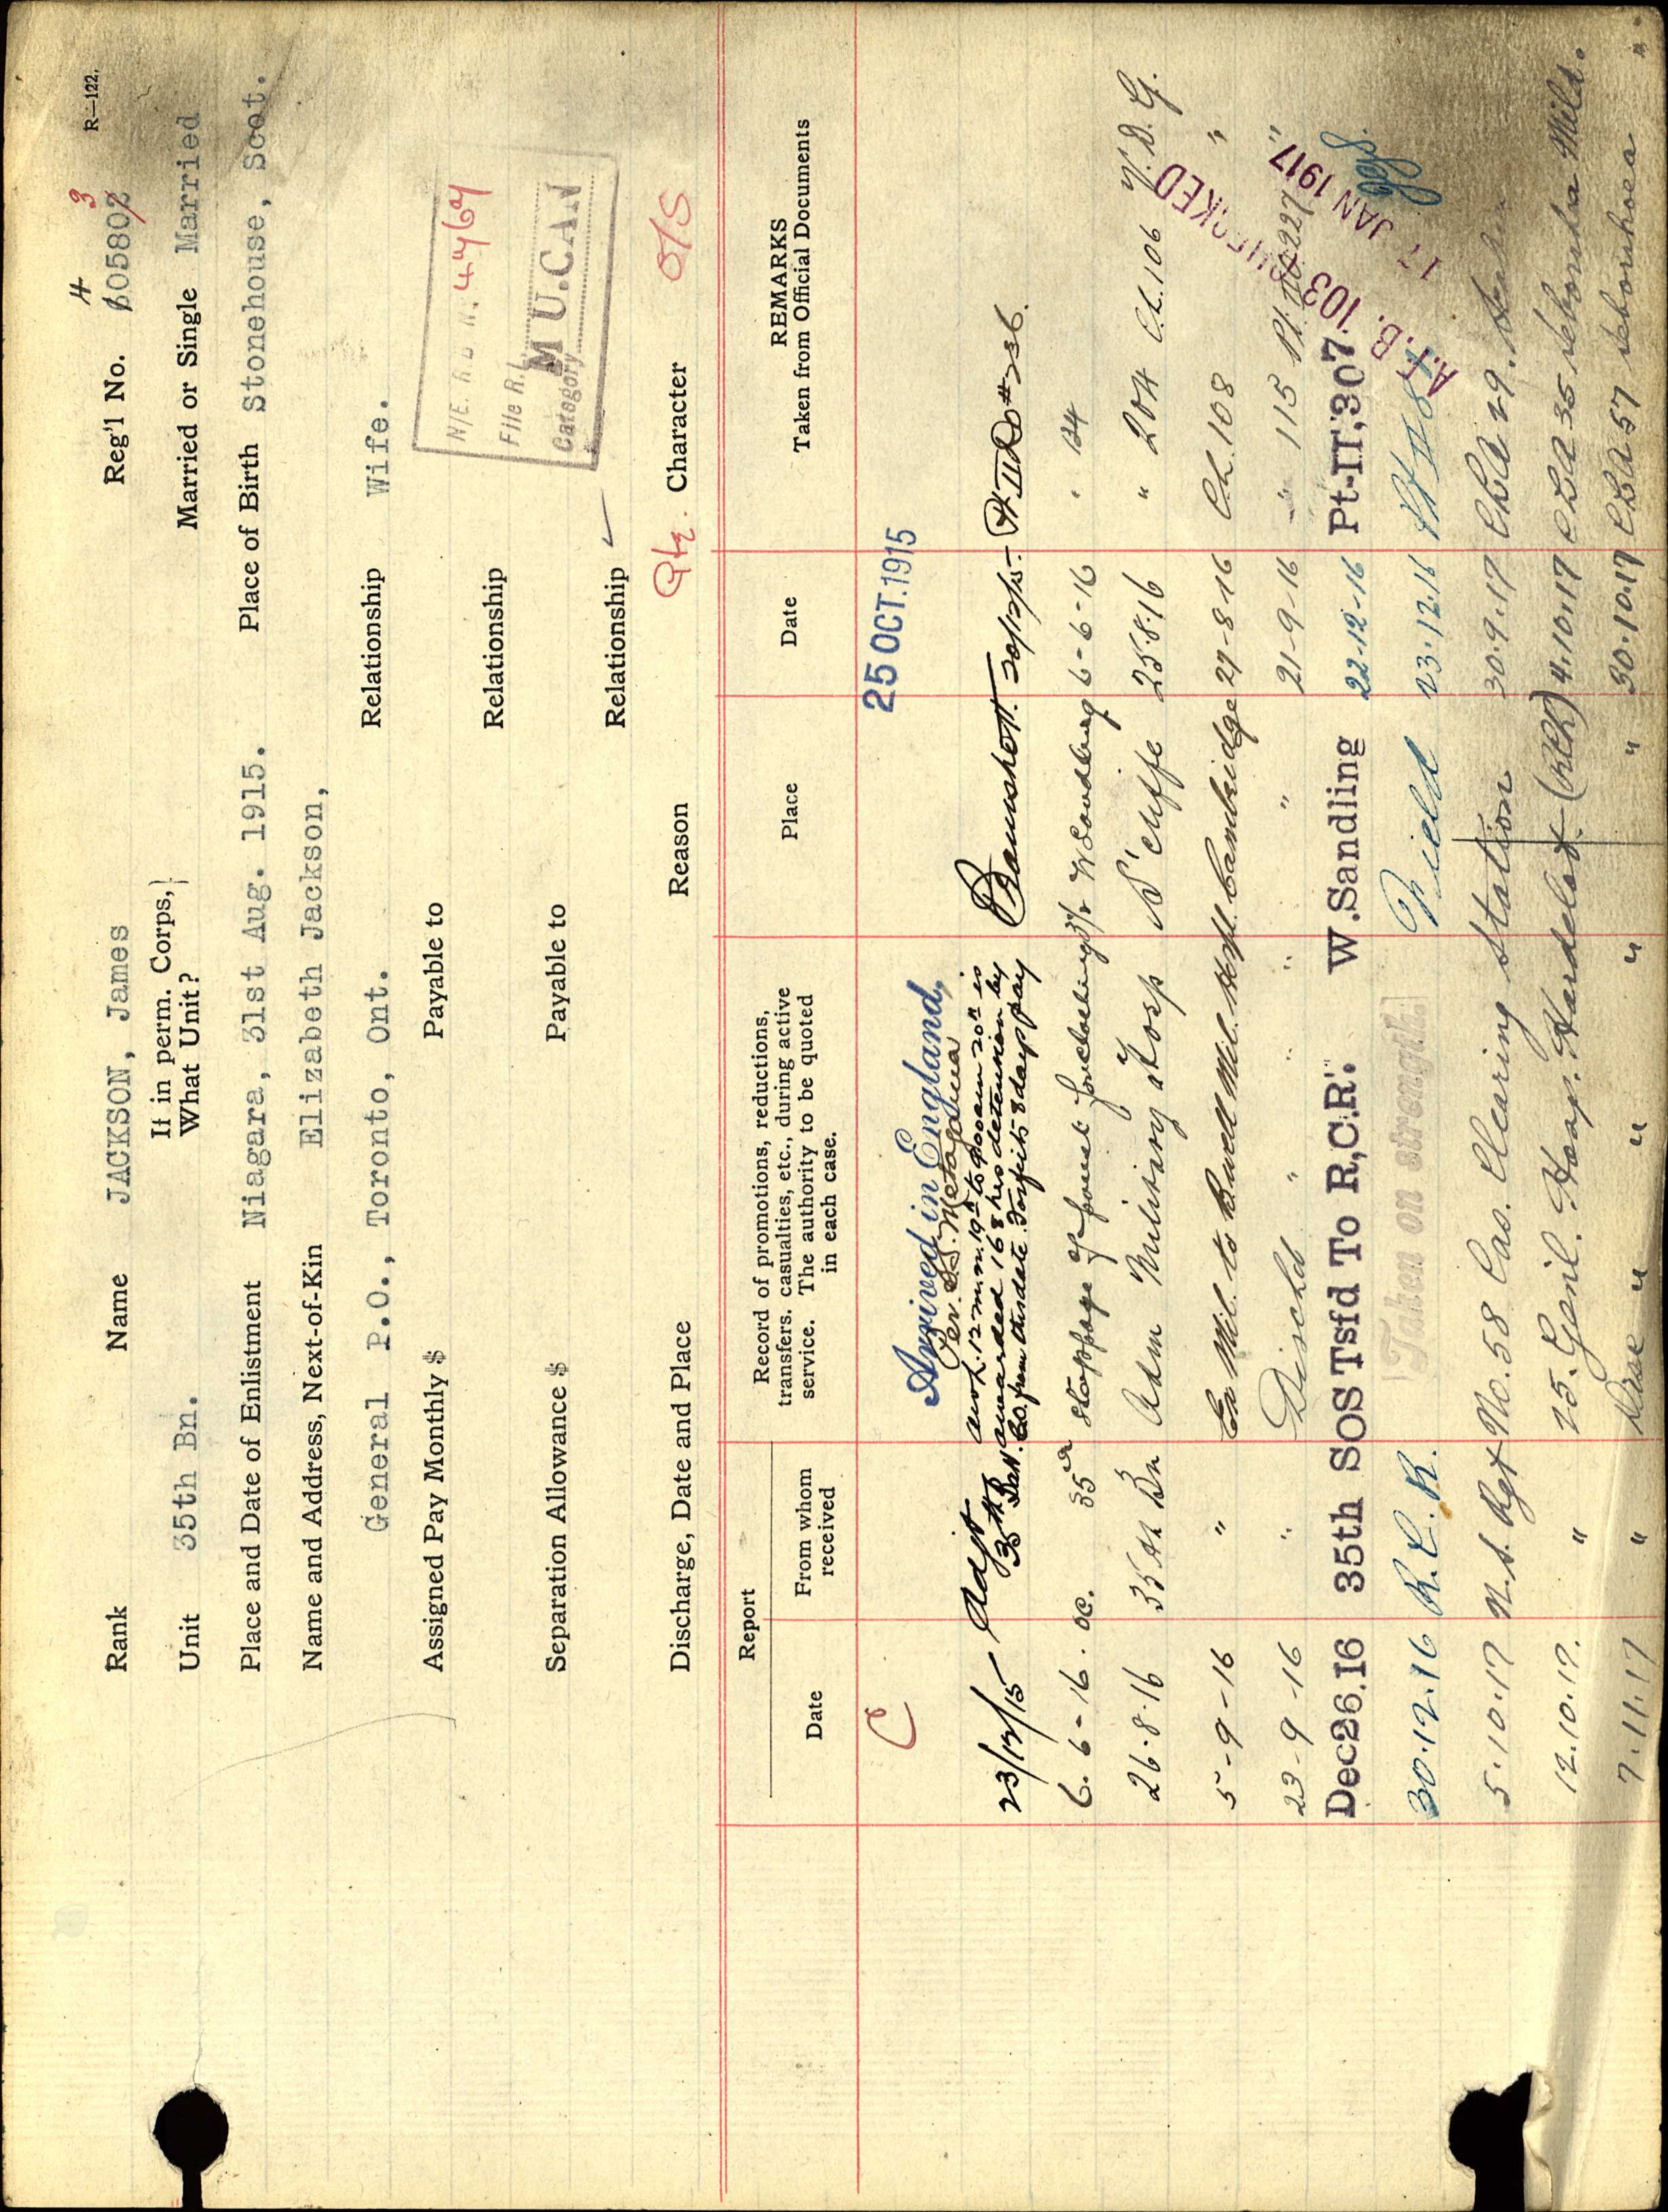 R—122.
Rank Name JACKSON, James Reg'l No. 4 605802 3
Unit 35th Bn. If in perm. Corps, What Unit? Married or Single Married
Place and Date of Enlistment Niagara, 31st Aug. 1915. Place of Birth Stonehouse, Scot.
Name and Address, Next-of-Kin Elizabeth Jackson,
General P.O., Toronto, Ont. Relationship Wife.
Assigned Pay Monthly $ Payable to
Relationship
N/E. R.B. N.
File R.L.
Category M U.CAN
Separation Allowance $ Payable to
Relationship
Discharge, Date and Place Reason Character O/S
Report
Date
From whom received
Record of promotions, reductions, transfers. casualties, etc., during active service. The authority to be quoted in each case.
Place
Date
REMARKS
Taken from Official Documents
C Arrived in England, 25 OCT. 1915
Per. S.S. Metagama
23/12/15 Adjt 35th Batt. awarded 168 hrs detention by C.O. from this date. Forfeits 8 days pay Bramshott. 20/12/15 Pt. II D.O # 236.
6-6-16. OC. 35th stoppage of W Sandling 6-6-16 " 134
26.8.16 35th Bn Adm Military Hosp S'cliffe 25.8.16 " 204 C.L. 106 V.D.G.
5-9-16 " Ex Mil. to Mil. Hosp. Cambridge 27-8-16 C.L. 108 "
23-9-16 " Dischd " " " " 21-9-16 " 115
Dec26.16 35th SOS Tsfd To R,C.R. W.Sandling 22-12-16 Pt-II,307.
30.12.16 R.C.R. Taken on strength. Field 23.12.16 Pt II
A.F.B. 103 CHECKED
17 JAN 1917
5.10.17 N.S. Rgt No. 58 Cas. Clearing Station 30.9.17 CLA 29.
12.10.17. " 25. Genl. Hosp. Hardelot 4.10.17 CLA 35 Seborrhea Mild.
7.11.17 " Disc " " " " 30.10.17 CLA 57 Seborrhoea "